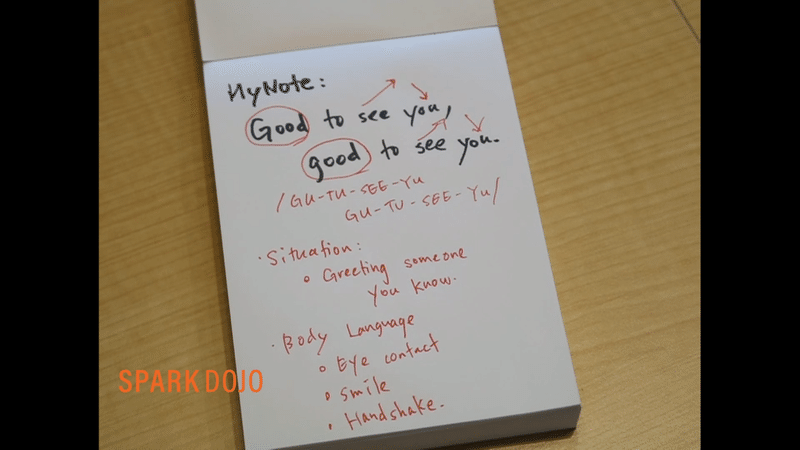 MyNote:
Good to see you,
good to see you.
/GU-TU-SEE-YU
GU-TU-SEE-YU/
· Situation:
∘ Greeting someone
you know.
· Body Language
∘ Eye contact
∘ Smile
∘ Handshake.
SPARK DOJO